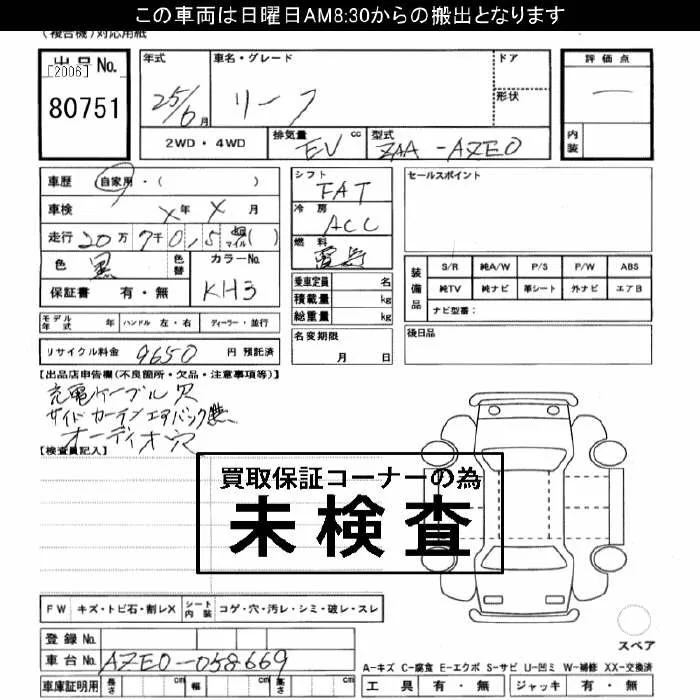 この車両は日曜日AM8:30からの搬出となります
（複合機）対応用紙
出品No. 年式 車名・グレード ドア 評価点
[2006]
80751 25/6月 リーフ 形状 一
2WD・4WD 排気量 EV cc 型式 ZAA-AZE0 内装
車歴 自家用・（ ） シフト FAT セールスポイント
車検 X年 X月 冷房 ACC
走行 20万 7千 0,5 マイル( ) 燃料 電気
色 黒 色替 カラーNo. KH3
装備品 S/R 純A/W P/S P/W ABS
保証書 有・無 乗車定員 名 純TV 純ナビ 革シート 外ナビ エアB
積載量 kg ナビ型番：
総重量 kg
モデル年式 年 ハンドル 左・右 ディーラー・並行 名変期限 月 日 後日品
リサイクル料金 9650 円 預託済
【出品店申告欄(不良箇所・欠品・注意事項等)】
充電ケーブル欠
サイドカーテンエアバック無
オーディオ欠
【検査員記入】
買取保証コーナーの為
未検査
FW キズ・トビ石・割レX シート内装 コゲ・穴・汚レ・シミ・破レ・スレ
登録No.
スペア
車台No. AZE0-058669
A-キズ C-腐食 E-エクボ S-サビ U-凹ミ W-補修 XX-交換済
車庫証明用 長さ cm 幅 cm 高さ cm 工具 有・無 ジャッキ 有・無